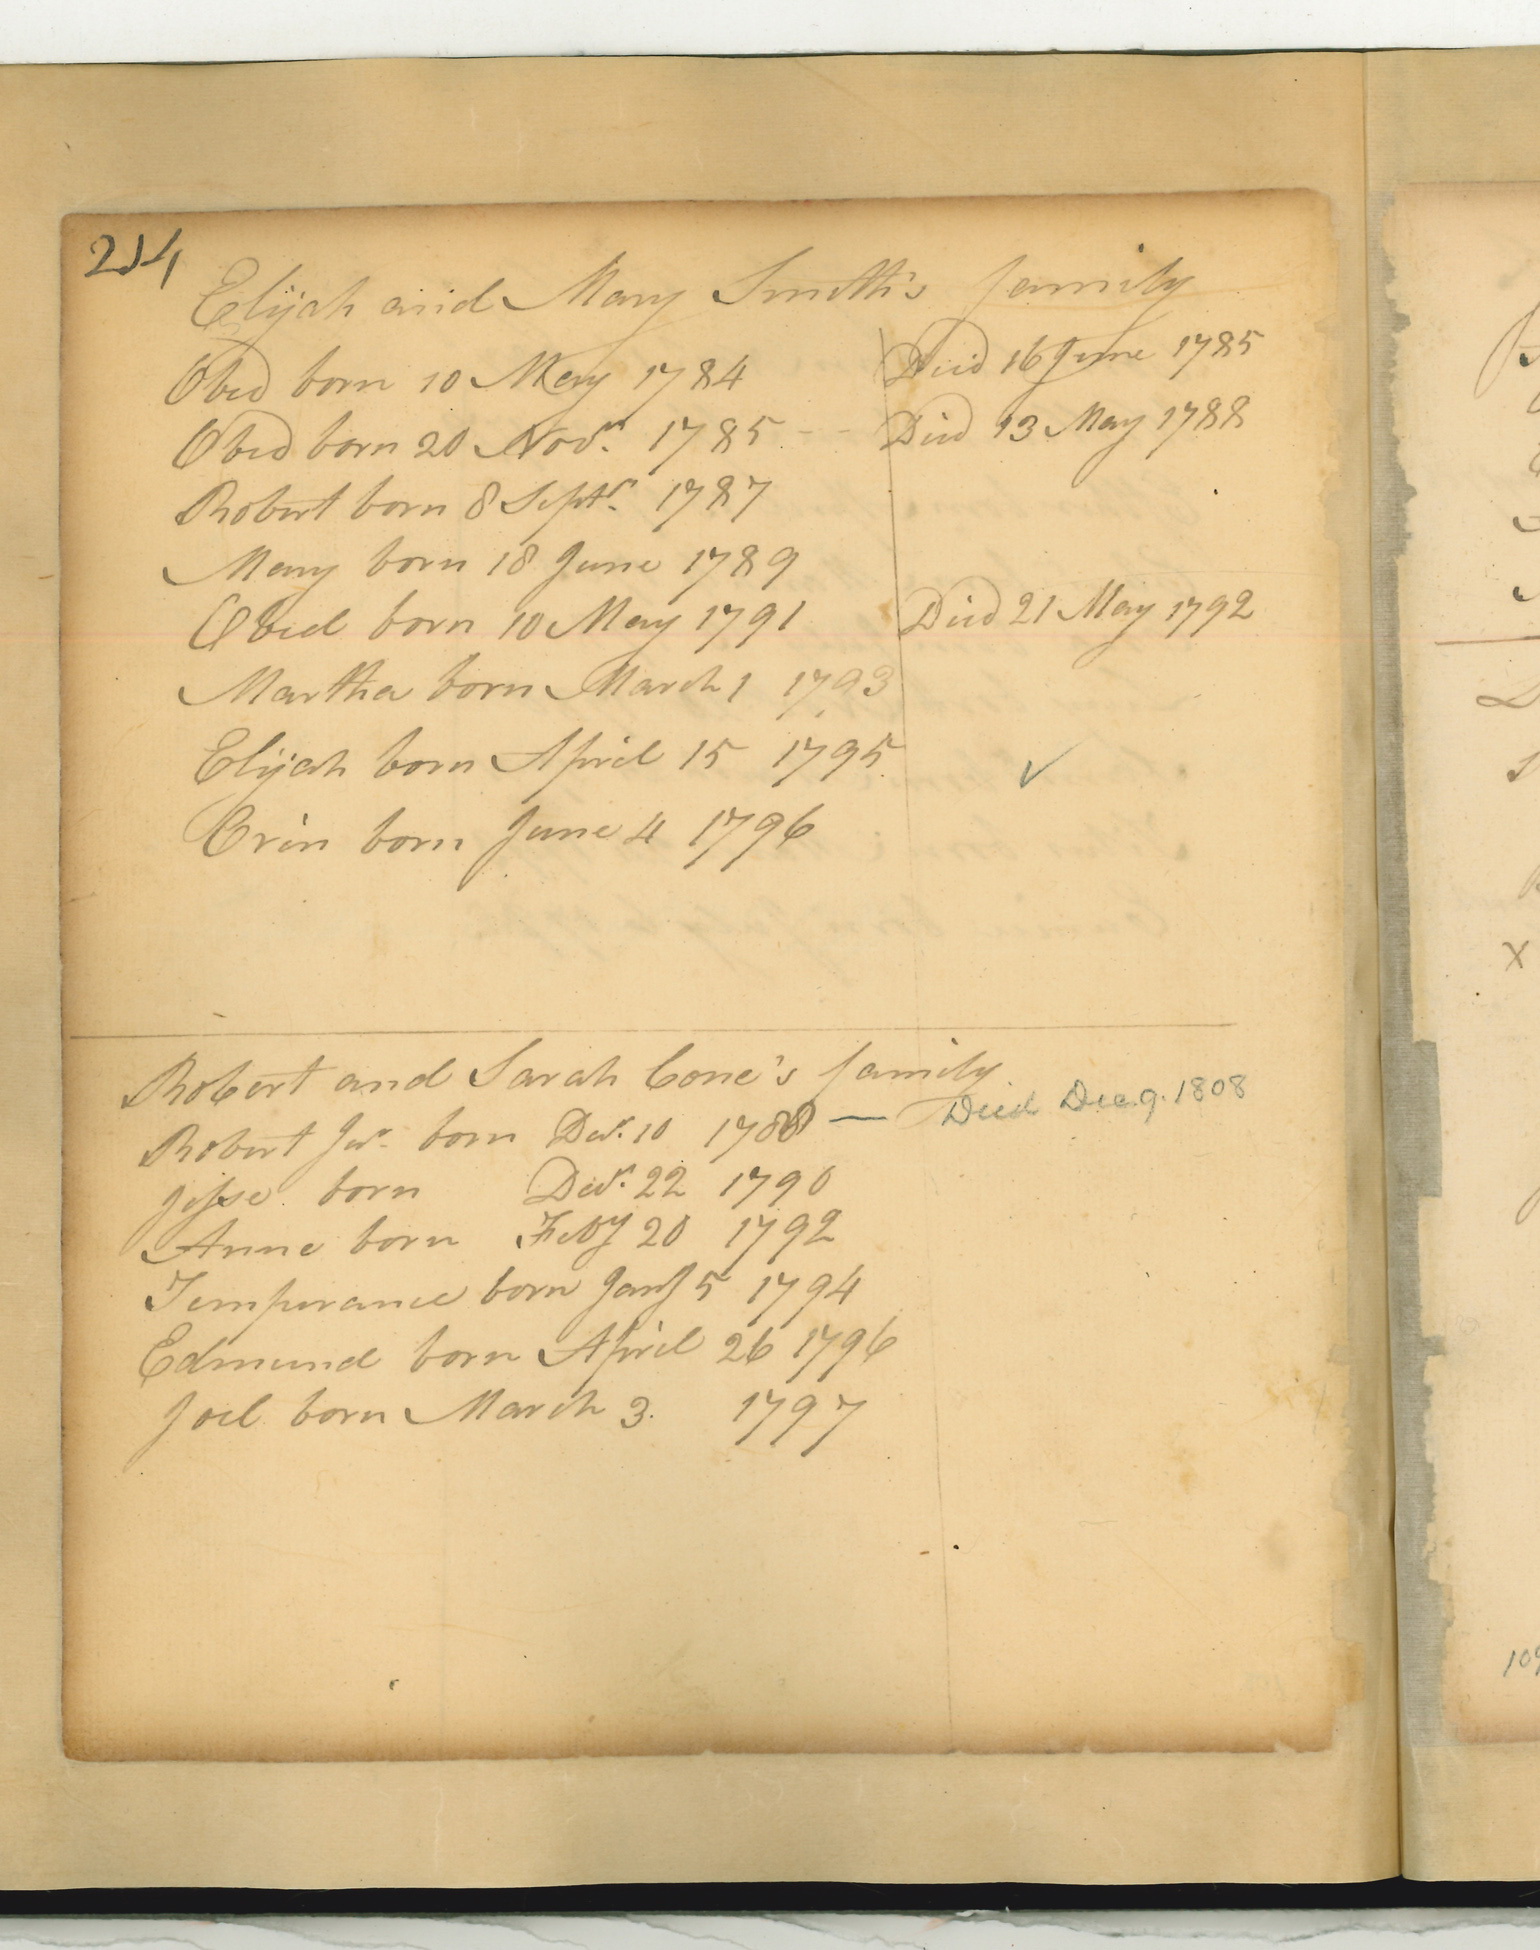 214
Elijah and Mary Smith's family
Obed born 10 May 1784 Died 16 June 1785
Obed born 20 Novr. 1785 -- Died 13 May 1788
Robert born 8 Septr. 1787
Mary born 18 June 1789
Obed born 10 May 1791 Died 21 May 1792
Martha born March 1 1793
Elijah born April 15 1795 ✓
Orin born June 4 1796
Robert and Sarah Cone's family
Robert Jur. born Decr. 10 1788 — Died Dec. 9. 1808
Jesse born Decr. 22 1790
Anne born Feby 20 1792
Temperance born Jany 5 1794
Edmund born April 26 1796
Joel born March 3. 1797
X